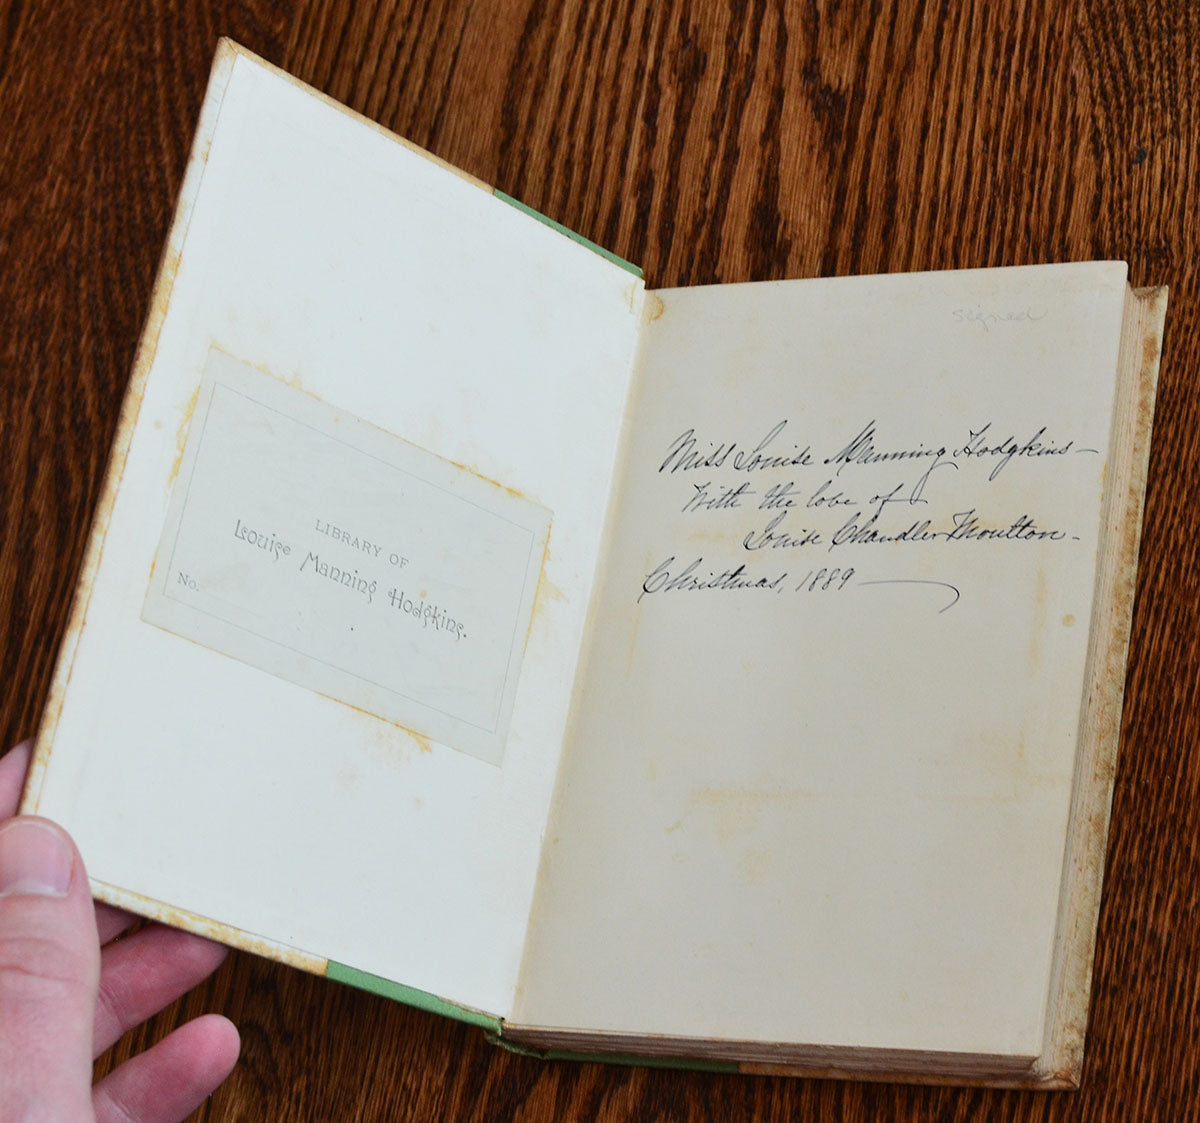 LIBRARY OF
Louise Manning Hodgkins.
No.
signed
Miss Louise Manning Hodgkins—
With the love of
Louise Chandler Moulton-
Christmas, 1889 —